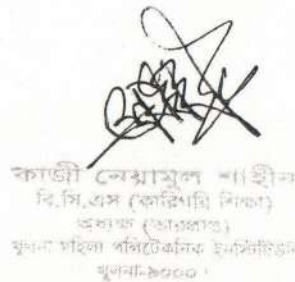 কাজী নেয়ামুল শাহীন
বি,সি,এস (কারিগরি শিক্ষা)
অধ্যক্ষ (ভারপ্রাপ্ত)
খুলনা মহিলা পলিটেকনিক ইনস্টিটিউট
খুলনা-৯০০০।